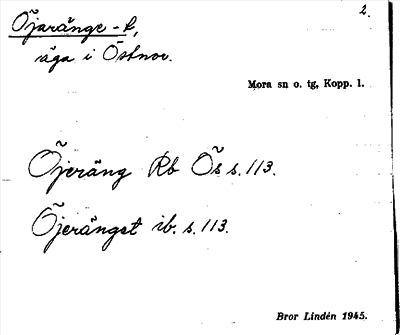 2.
Öjaränge -t,
äga i Östnor.
Mora sn o. tg, Kopp. l.
Öjeräng Rb Ös s. 113.
Öjeränget ib. s. 113.
Bror Lindén 1945.